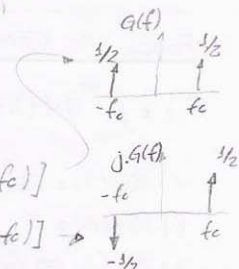 G(f)
1/2 1/2
-fc fc
fc)]
j.G(f)
-fc 1/2
fc)] fc
-1/2